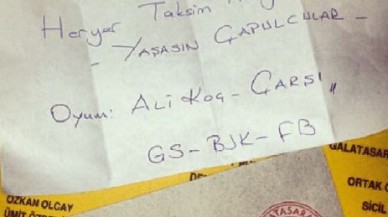 Heryer Taksim
- YAŞASIN ÇAPULCULAR -
Oyum: ALİ KOÇ - ÇARŞI,,
GS - BJK - FB
GALATASAR
ORTAK
SİCİL
ÖZKAN OLCAY
ÜMİT